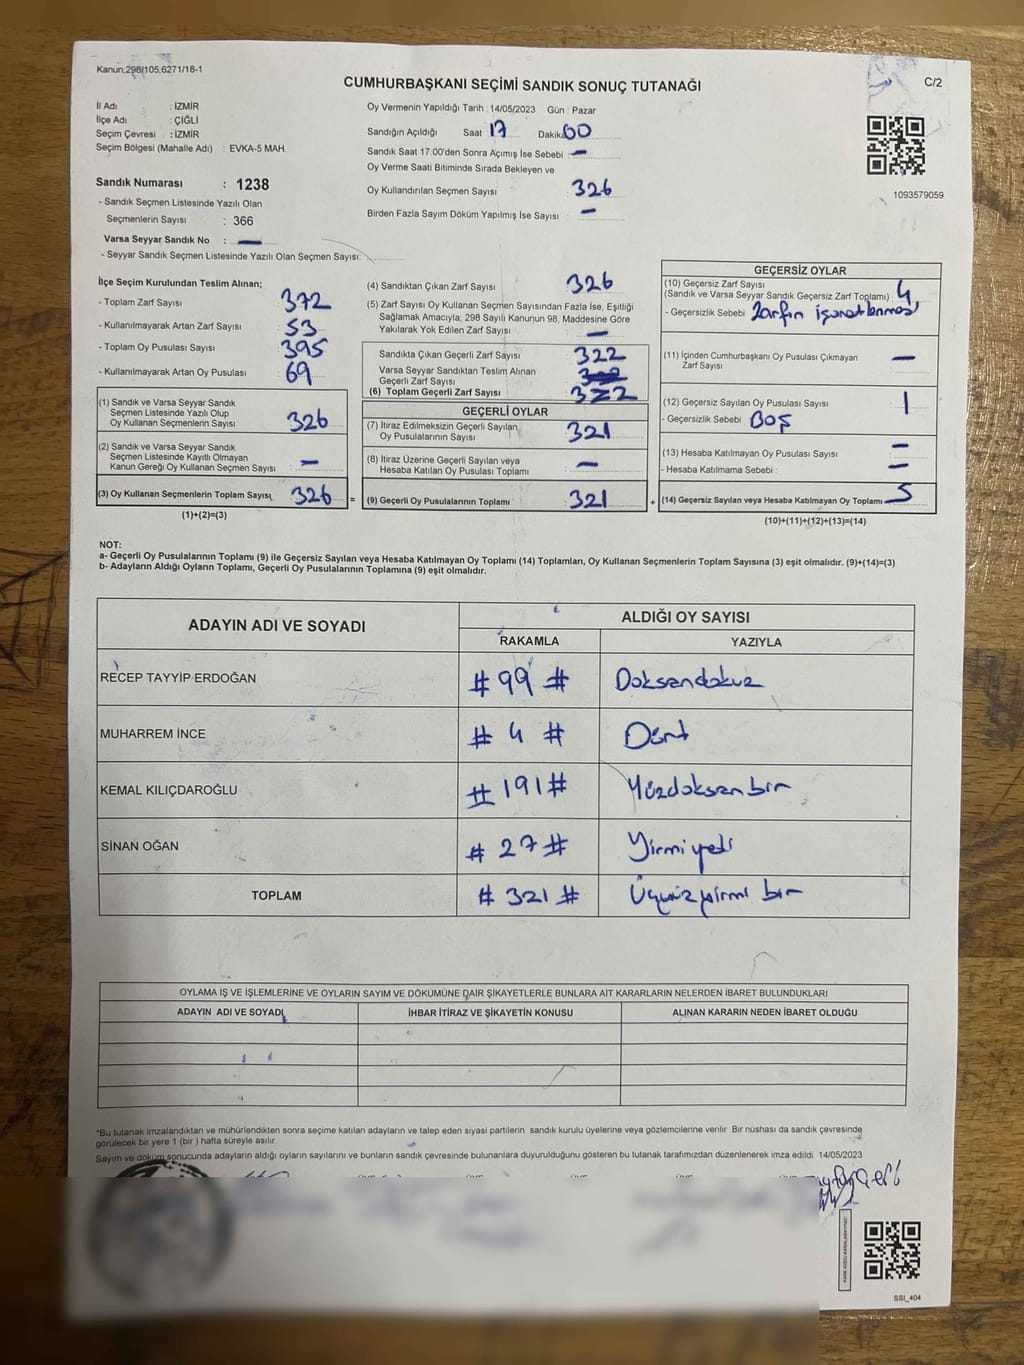 Kanun:298/105,6271/18-1
CUMHURBAŞKANI SEÇİMİ SANDIK SONUÇ TUTANAĞI
C/2
İl Adı : İZMİR
İlçe Adı : ÇİĞLİ
Seçim Çevresi : İZMİR
Seçim Bölgesi (Mahalle Adı) : EVKA-5 MAH.
Sandık Numarası : 1238
- Sandık Seçmen Listesinde Yazılı Olan
Seçmenlerin Sayısı : 366
Varsa Seyyar Sandık No : —
- Seyyar Sandık Seçmen Listesinde Yazılı Olan Seçmen Sayısı:
Oy Vermenin Yapıldığı Tarih : 14/05/2023 Gün : Pazar
Sandığın Açıldığı Saat 17 Dakika 00
Sandık Saat 17:00'den Sonra Açımış İse Sebebi : —
Oy Verme Saati Bitiminde Sırada Bekleyen ve
Oy Kullandırılan Seçmen Sayısı : 326
Birden Fazla Sayım Döküm Yapılmış İse Sayısı : —
1093579059
İlçe Seçim Kurulundan Teslim Alınan;
- Toplam Zarf Sayısı : 372
- Kullanılmayarak Artan Zarf Sayısı : 53
- Toplam Oy Pusulası Sayısı : 395
- Kullanılmayarak Artan Oy Pusulası : 69
(1) Sandık ve Varsa Seyyar Sandık
Seçmen Listesinde Yazılı Olup
Oy Kullanan Seçmenlerin Sayısı : 326
(2) Sandık ve Varsa Seyyar Sandık
Seçmen Listesinde Kayıtlı Olmayan
Kanun Gereği Oy Kullanan Seçmen Sayısı : —
(3) Oy Kullanan Seçmenlerin Toplam Sayısı : 326 =
(1)+(2)=(3)
(4) Sandıktan Çıkan Zarf Sayısı : 326
(5) Zarf Sayısı Oy Kullanan Seçmen Sayısından Fazla İse, Eşitliği
Sağlamak Amacıyla; 298 Sayılı Kanunun 98. Maddesine Göre
Yakılarak Yok Edilen Zarf Sayısı : —
Sandıkta Çıkan Geçerli Zarf Sayısı : 322
Varsa Seyyar Sandıktan Teslim Alınan
Geçerli Zarf Sayısı :
(6) Toplam Geçerli Zarf Sayısı : 322
GEÇERLİ OYLAR
(7) İtiraz Edilmeksizin Geçerli Sayılan
Oy Pusulalarının Sayısı : 321
(8) İtiraz Üzerine Geçerli Sayılan veya
Hesaba Katılan Oy Pusulası Toplamı : —
(9) Geçerli Oy Pusulalarının Toplamı : 321 +
GEÇERSİZ OYLAR
(10) Geçersiz Zarf Sayısı
(Sandık ve Varsa Seyyar Sandık Geçersiz Zarf Toplamı) : 4
- Geçersizlik Sebebi : Zarfın işaretlenmesi
(11) İçinden Cumhurbaşkanı Oy Pusulası Çıkmayan
Zarf Sayısı : —
(12) Geçersiz Sayılan Oy Pusulası Sayısı : 1
- Geçersizlik Sebebi : BOŞ
(13) Hesaba Katılmayan Oy Pusulası Sayısı : —
- Hesaba Katılmama Sebebi : —
(14) Geçersiz Sayılan veya Hesaba Katılmayan Oy Toplamı : 5
(10)+(11)+(12)+(13)=(14)
NOT:
a- Geçerli Oy Pusulalarının Toplamı (9) ile Geçersiz Sayılan veya Hesaba Katılmayan Oy Toplamı (14) Toplamları, Oy Kullanan Seçmenlerin Toplam Sayısına (3) eşit olmalıdır. (9)+(14)=(3)
b- Adayların Aldığı Oyların Toplamı, Geçerli Oy Pusulalarının Toplamına (9) eşit olmalıdır.
ADAYIN ADI VE SOYADI ALDIĞI OY SAYISI
RAKAMLA YAZIYLA
RECEP TAYYİP ERDOĞAN # 99 # Doksandokuz
MUHARREM İNCE # 4 # Dört
KEMAL KILIÇDAROĞLU # 191 # Yüzdoksanbir
SİNAN OĞAN # 27 # Yirmiyedi
TOPLAM # 321 # Üçyüzyirmi bir
OYLAMA İŞ VE İŞLEMLERİNE VE OYLARIN SAYIM VE DÖKÜMÜNE DAİR ŞİKAYETLERLE BUNLARA AİT KARARLARIN NELERDEN İBARET BULUNDUKLARI
ADAYIN ADI VE SOYADI İHBAR İTİRAZ VE ŞİKAYETİN KONUSU ALINAN KARARIN NEDEN İBARET OLDUĞU
*Bu tutanak imzalandıktan ve mühürlendikten sonra seçime katılan adayların ve talep eden siyasi partilerin sandık kurulu üyelerine veya gözlemcilerine verilir. Bir nüshası da sandık çevresinde
görülecek bir yere 1 (bir ) hafta süreyle asılır.
Sayım ve döküm sonucunda adayların aldığı oyların sayılarını ve bunların sandık çevresinde bulunanlara duyurulduğunu gösteren bu tutanak tarafımızdan düzenlenerek imza edildi. 14/05/2023
SSI_404